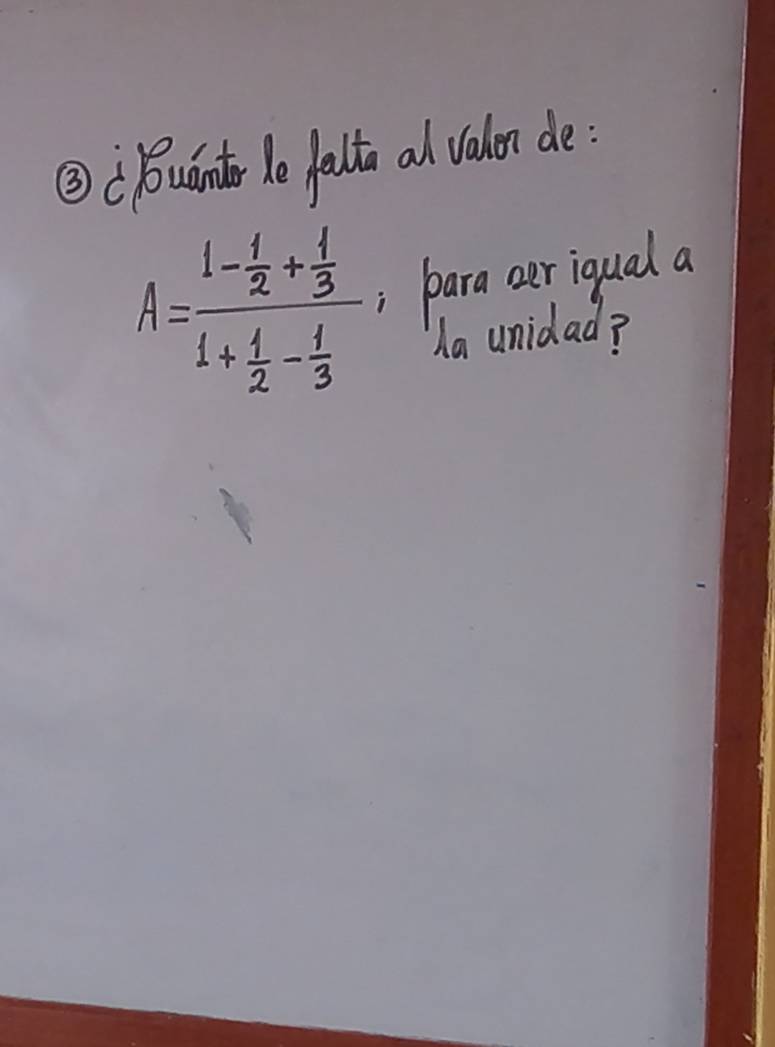 ③ ¿Cuánto le falta al valor de:
A = (1 - 1/2 + 1/3) / (1 + 1/2 - 1/3) ; para ser igual a
la unidad?